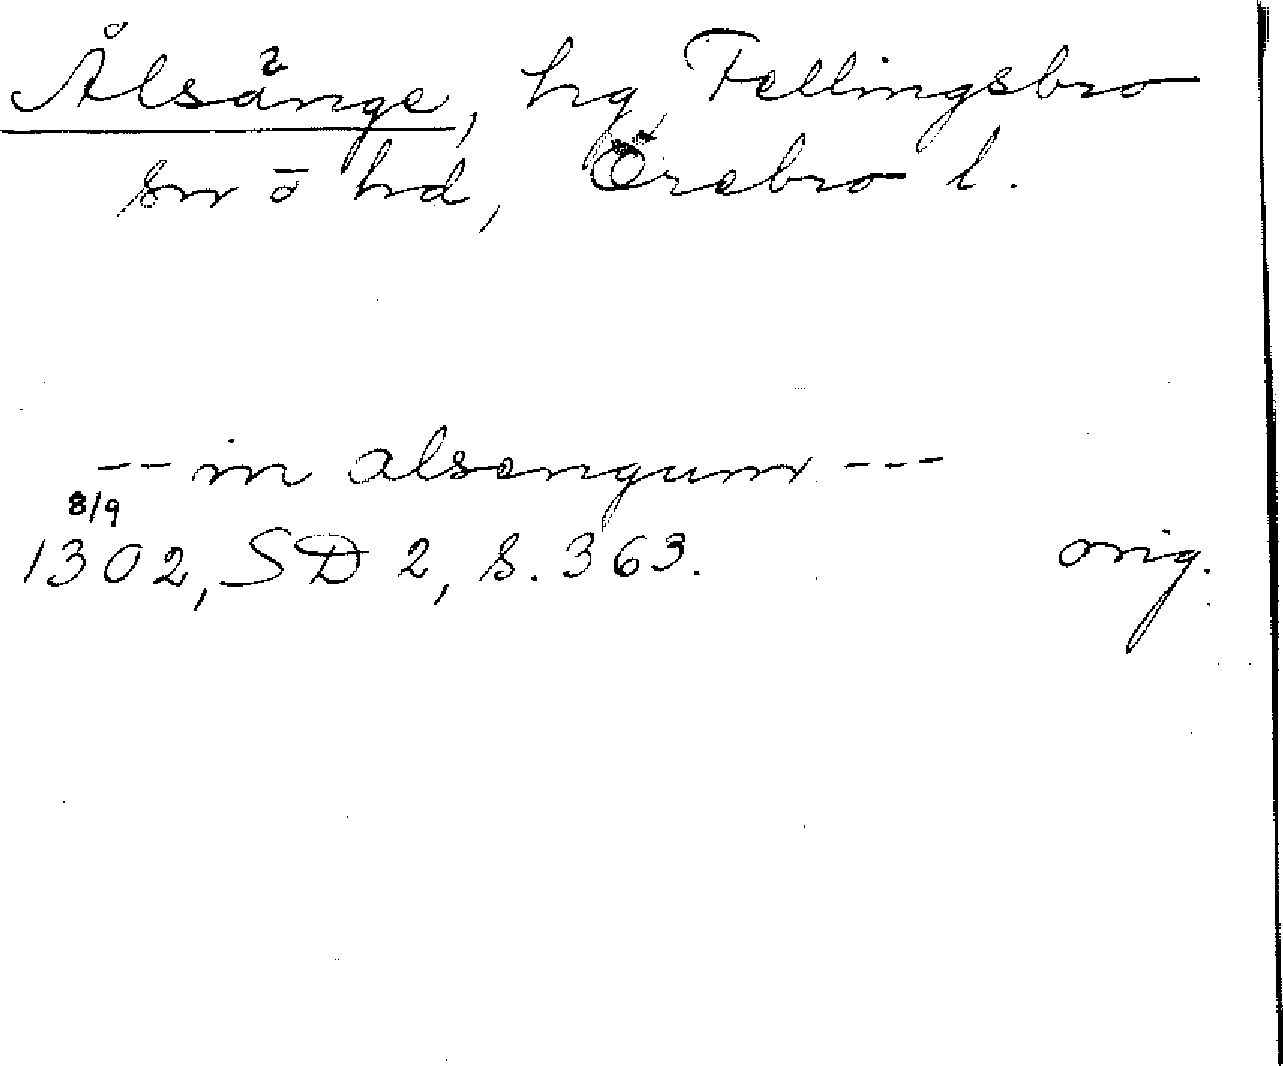 Ålsänge, hg, Fellingsbro
sn o hd, Örebro l.
-- in alsengium ---
8/9
1302, SD 2, s. 363. orig.